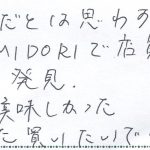 だとは思わず
MIDORIで店員
発見.
美味しかった
た買いたいで